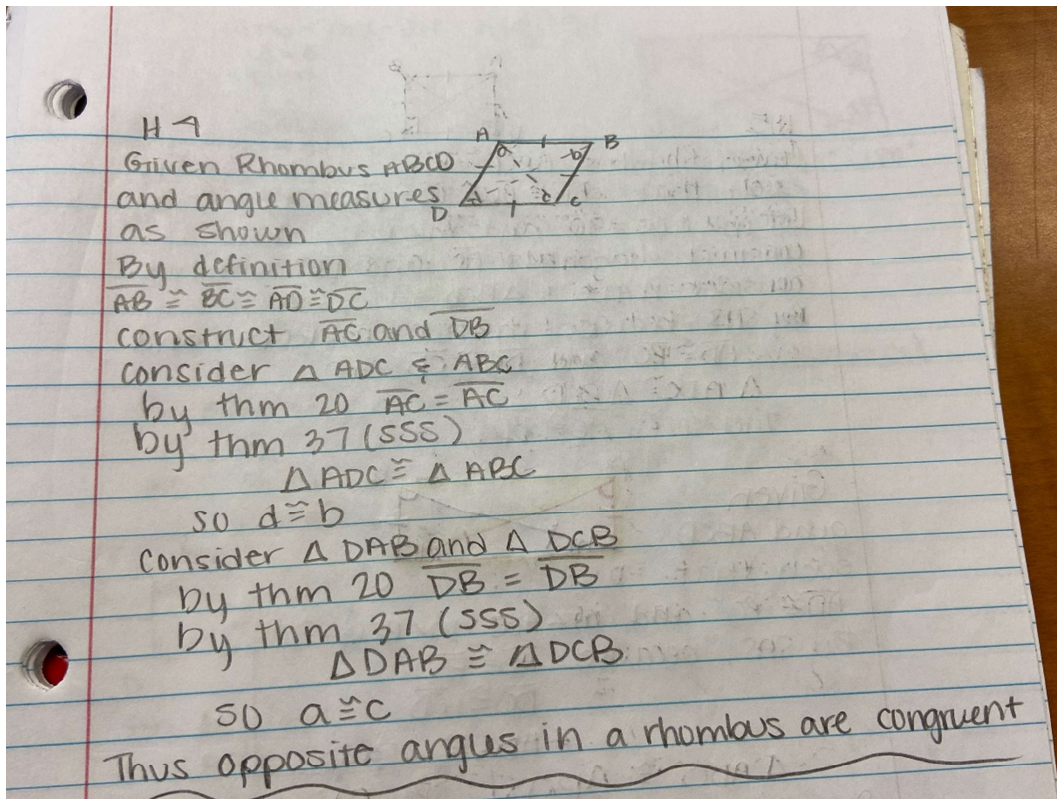 H4
A B
Given Rhombus ABCD
a b
and angle measures
d c C
D
as shown
By definition
AB ≅ BC ≅ AD ≅ DC
construct AC and DB
consider △ ADC & ABC
by thm 20 AC = AC
by thm 37 (SSS)
△ ADC ≅ △ ABC
so d ≅ b
Consider △ DAB and △ DCB
by thm 20 DB = DB
by thm 37 (SSS)
△DAB ≅ △DCB
so a ≅ c
Thus opposite angles in a rhombus are congruent